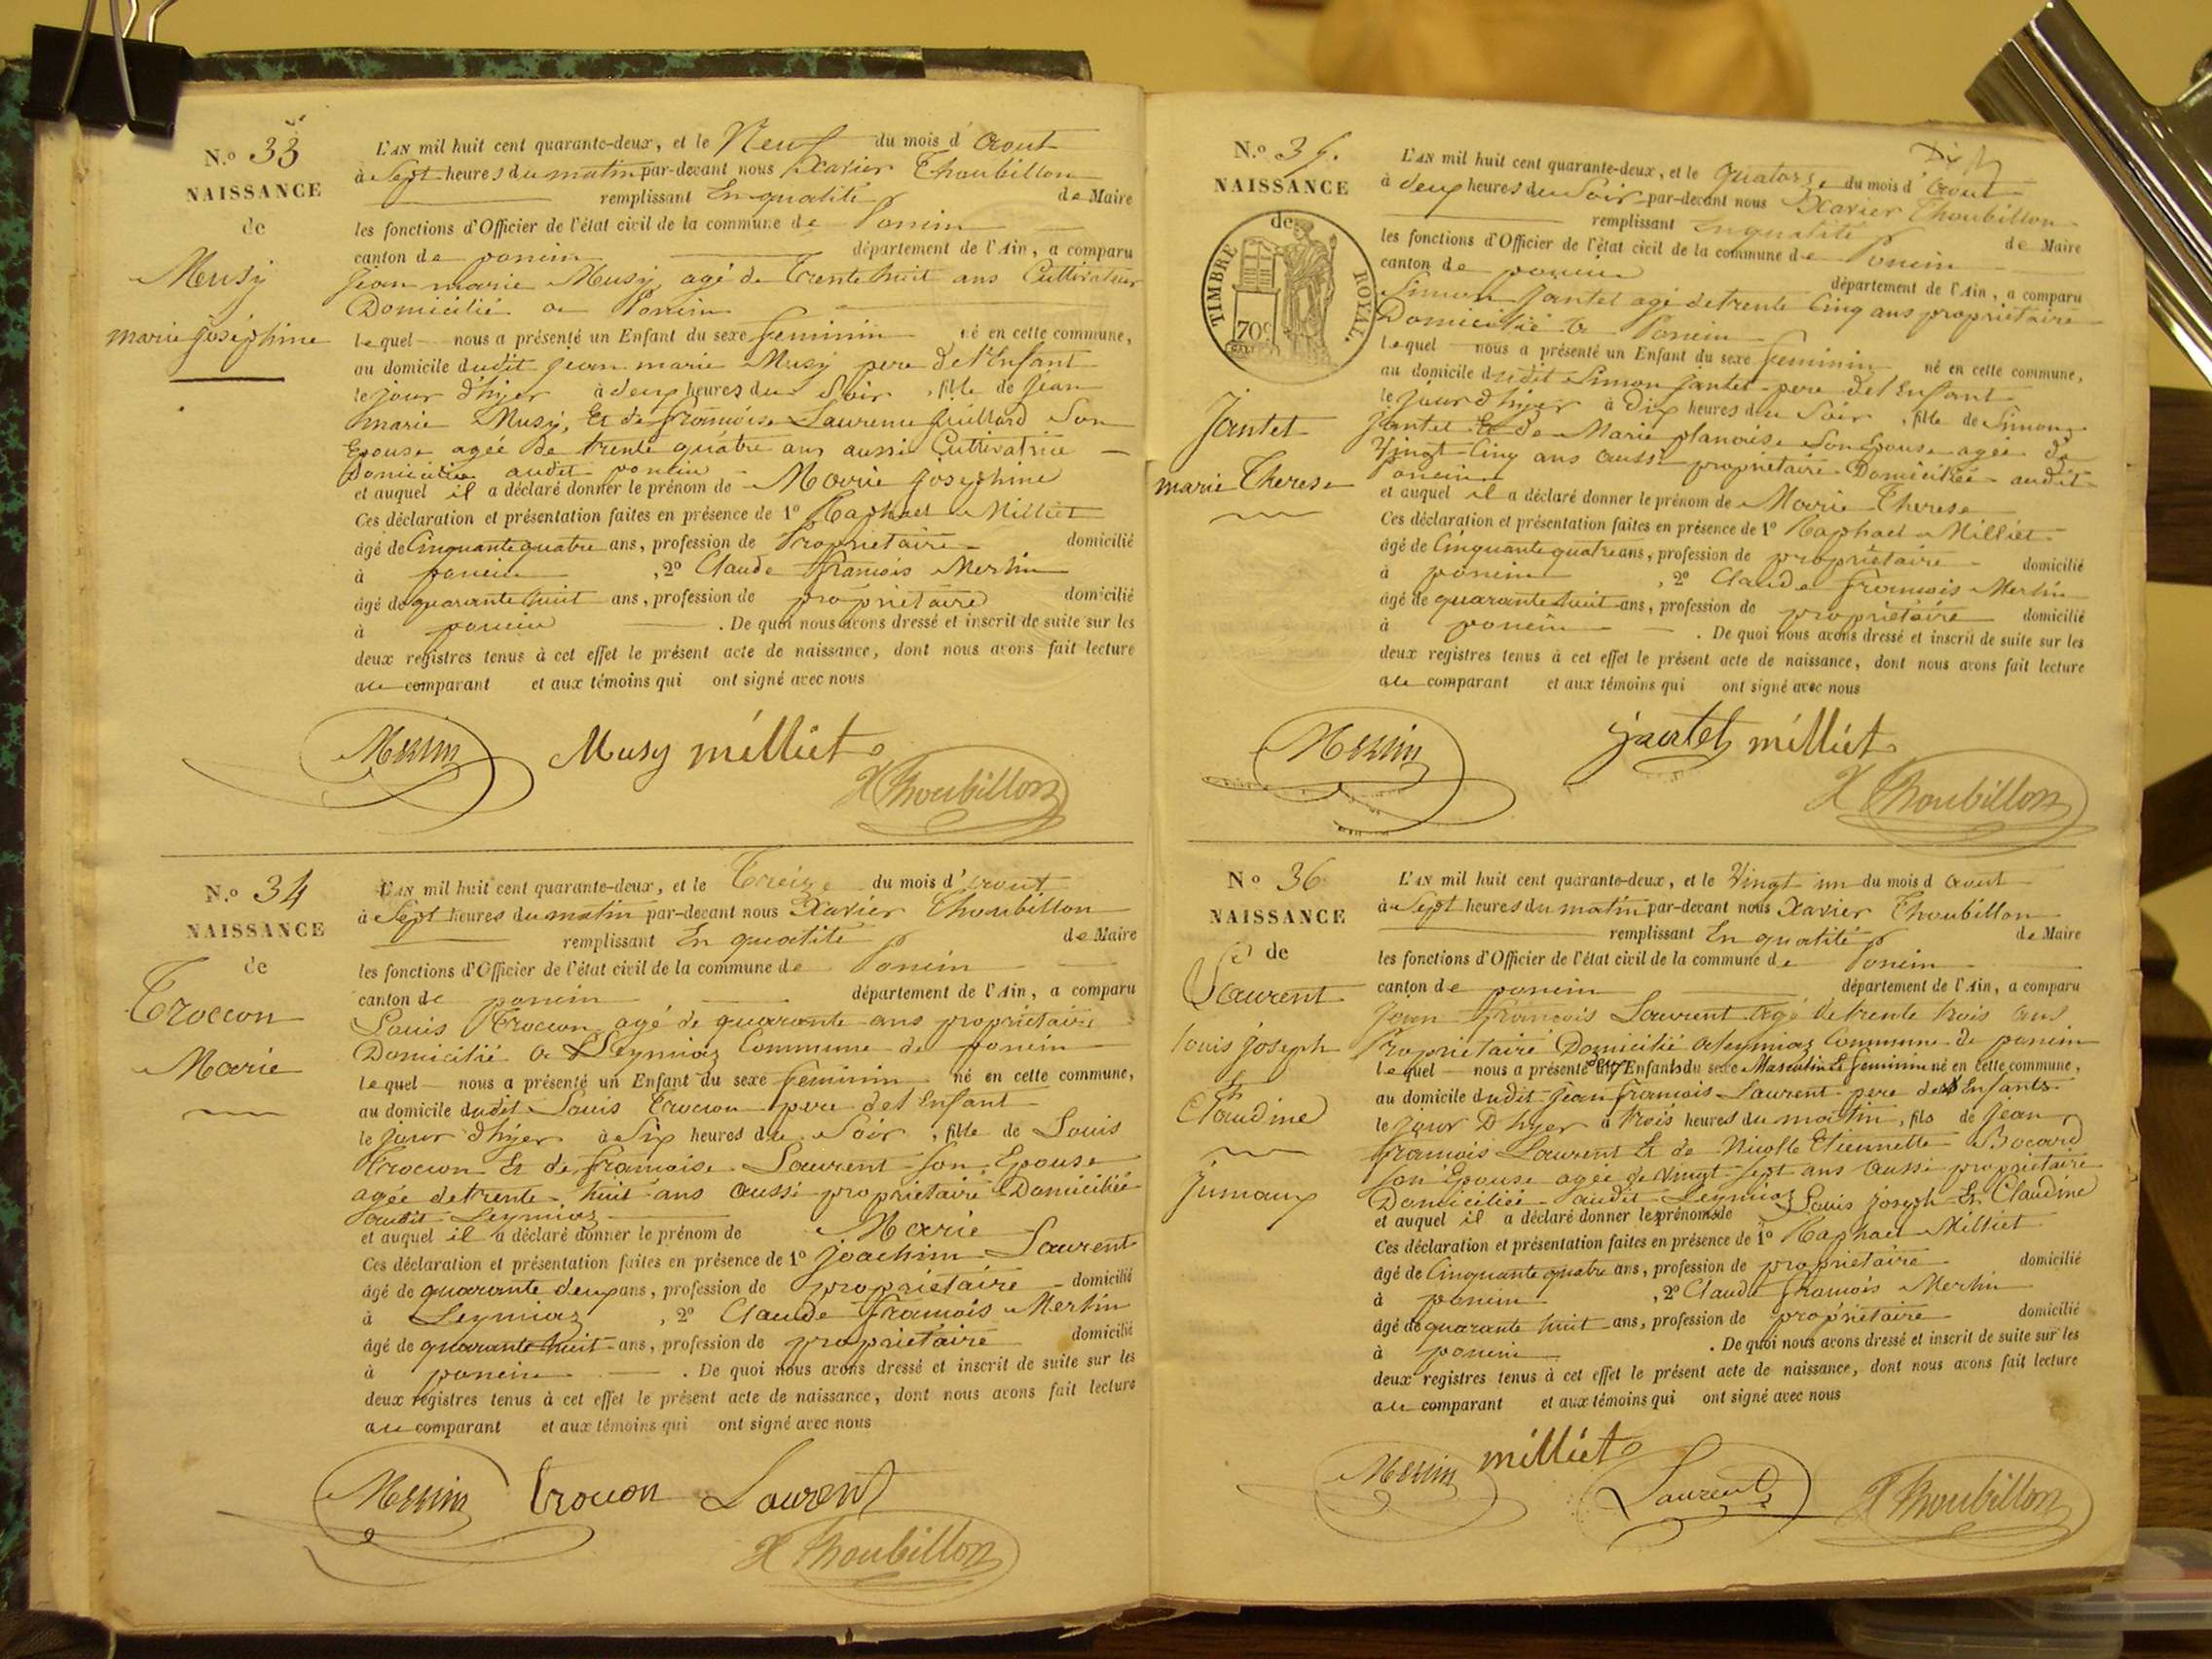 N.o 33
NAISSANCE
de
Musy
marie joséphine
L'AN mil huit cent quarante-deux, et le Neuf du mois d'aout
à Sept heures du matin par-devant nous Xavier Thoubillon
remplissant En qualité de Maire
les fonctions d'Officier de l'état civil de la commune de Poncin
canton de poncin département de l'Ain, a comparu
Jean marie Musy, agé de Trente huit ans Cultivateur
Domicilié a Poncin
lequel nous a présenté un Enfant du sexe feminin né en cette commune,
au domicile dudit jean marie Musy pere de l'Enfant
le jour d'hyer à deux heures du Soir, fille de jean
marie Musy, Et de francoise Laurence juillard Son
Epouse agée de trente quatre ans aussi Cultivatrice
Domiciliée audit poncin
et auquel il a déclaré donner le prénom de Marie josephine
Ces déclaration et présentation faites en présence de 1o Raphael Milliet
âgé de Cinquante quatre ans, profession de Proprietaire domicilié
à poncin, 2o Claude francois Merlin
âgé de quarante huit ans, profession de proprietaire domicilié
à poncin. De quoi nous avons dressé et inscrit de suite sur les
deux registres tenus à cet effet le présent acte de naissance, dont nous avons fait lecture
au comparant et aux témoins qui ont signé avec nous
Merlin Musy milliet
X Thoubillon
N.o 34
NAISSANCE
de
Troccon
Marie
L'AN mil huit cent quarante-deux, et le Treize du mois d'aout
à Sept heures du matin par-devant nous Xavier Thoubillon
remplissant En qualité de Maire
les fonctions d'Officier de l'état civil de la commune de Poncin
canton de poncin département de l'Ain, a comparu
Louis Troccon agé de quarante ans proprietaire
Domicilié a Leymiaz Commune de poncin
lequel nous a présenté un Enfant du sexe feminin né en cette commune,
au domicile dudit Louis Troccon pere de l'Enfant
le jour d'hyer à Six heures du Soir, fille de Louis
Troccon Et de francoise Laurent son Epouse
agée de trente huit ans aussi proprietaire Domiciliée
audit Leymiaz
et auquel il a déclaré donner le prénom de Marie
Ces déclaration et présentation faites en présence de 1o joachim Laurent
âgé de quarante deux ans, profession de proprietaire domicilié
à Leymiaz, 2o Claude francois Merlin
âgé de quarante huit ans, profession de proprietaire domicilié
à poncin. De quoi nous avons dressé et inscrit de suite sur les
deux registres tenus à cet effet le présent acte de naissance, dont nous avons fait lecture
au comparant et aux témoins qui ont signé avec nous
Merlin trocon Laurent
X Thoubillon
N.o 35.
NAISSANCE
de
TIMBRE ROYAL.
70c
Jantet
marie Therese
L'AN mil huit cent quarante-deux, et le quatorze du mois d'aout
à deux heures du Soir par-devant nous Xavier Thoubillon
remplissant En qualité de Maire
les fonctions d'Officier de l'état civil de la commune de Poncin
canton de poncin département de l'Ain, a comparu
Simon Jantet agé de trente Cinq ans proprietaire
Domicilié a Poncin
lequel nous a présenté un Enfant du sexe feminin né en cette commune,
au domicile dudit Simon jantet pere de l'Enfant
le jour d'hyer à dix heures du Soir, fille de Simon
jantet Et de Marie planaise Son Epouse agée de
Vingt Cinq ans aussi proprietaire Domiciliée audit
Poncin
et auquel il a déclaré donner le prénom de Marie Therese
Ces déclaration et présentation faites en présence de 1o Raphael Milliet
âgé de Cinquante quatre ans, profession de proprietaire domicilié
à poncin, 2o Claude francois Merlin
âgé de quarante huit ans, profession de proprietaire domicilié
à poncin. De quoi nous avons dressé et inscrit de suite sur les
deux registres tenus à cet effet le présent acte de naissance, dont nous avons fait lecture
au comparant et aux témoins qui ont signé avec nous
Merlin jantet milliet
X Thoubillon
No 36
NAISSANCE
de
Laurent
louis joseph
Et
Claudine
jumaux
L'AN mil huit cent quarante-deux, et le Vingt un du mois d aout
à Sept heures du matin par-devant nous Xavier Thoubillon
remplissant En qualité de Maire
les fonctions d'Officier de l'état civil de la commune de Poncin
canton de poncin département de l'Ain, a comparu
jean francois Laurent agé de trente trois ans
Proprietaire Domicilié a Leymiaz Commune de poncin
lequel nous a présenté deux Enfants du sexe Masculin Et feminin né en cette commune,
au domicile dudit jean francois Laurent pere des Enfants
le jour D'hyer à trois heures du matin, fils de jean
francois Laurent Et de Nicolle Etiennette Bocard
son Epouse agée de vingt sept ans aussi proprietaire
Domiciliée audit Leymiaz
et auquel il a déclaré donner les prénoms de Louis joseph Et Claudine
Ces déclaration et présentation faites en présence de 1o Raphael Milliet
âgé de Cinquante quatre ans, profession de proprietaire domicilié
à poncin, 2o Claude francois Merlin
âgé de quarante huit ans, profession de proprietaire domicilié
à poncin. De quoi nous avons dressé et inscrit de suite sur les
deux registres tenus à cet effet le présent acte de naissance, dont nous avons fait lecture
au comparant et aux témoins qui ont signé avec nous
Merlin milliet Laurent X Thoubillon